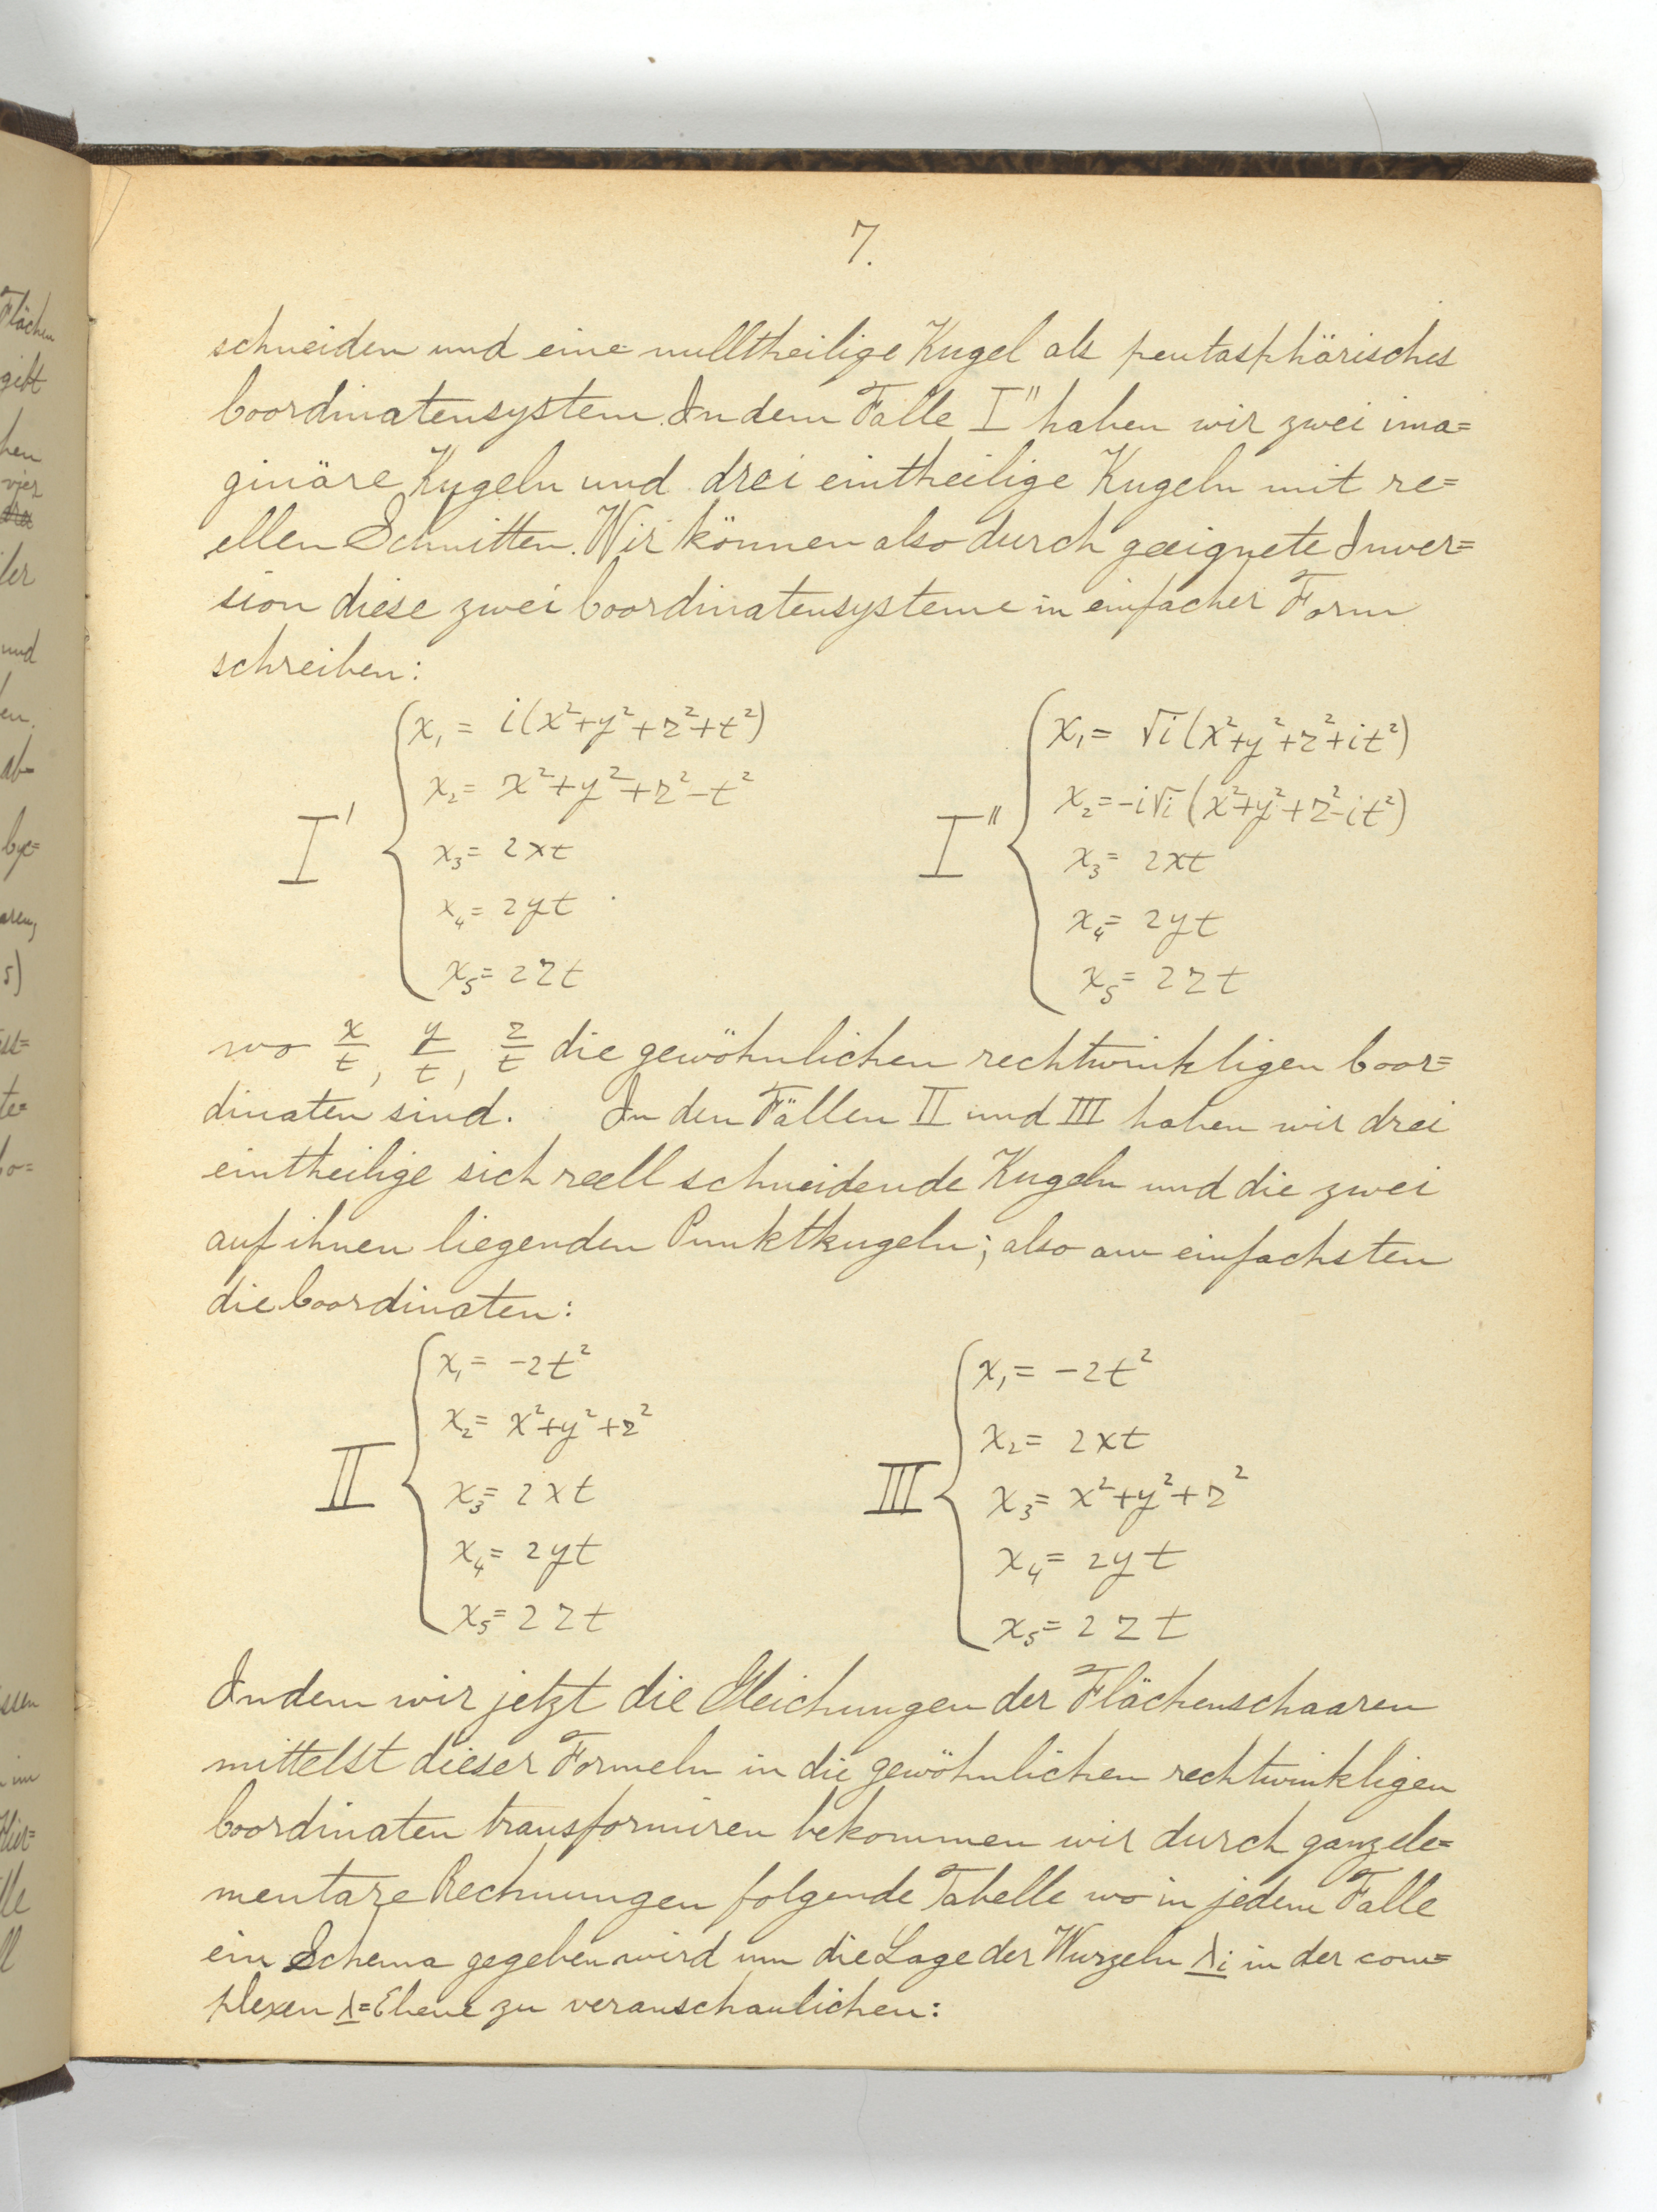 7.
schneiden und eine nulltheilige Kugel als pentasphärisches
Coordinatensystem. In dem Falle I'' haben wir zwei ima=
ginäre Kugeln und drei eintheilige Kugeln mit re=
ellen Schnitten. Wir können also durch geeignete Inver=
sion diese zwei Coordinatensysteme in einfacher Form
schreiben:
I' { x₁ = i(x²+y²+z²+t²)
x₂ = x²+y²+z²-t²
x₃ = 2xt
x₄ = 2yt
x₅ = 2zt
I'' { x₁ = √i(x²+y²+z²+it²)
x₂ = -i√i(x²+y²+z²-it²)
x₃ = 2xt
x₄ = 2yt
x₅ = 2zt
wo x/t, y/t, z/t die gewöhnlichen rechtwinkligen Coor=
dinaten sind. In den Fällen II und III haben wir drei
eintheilige sich reell schneidende Kugeln und die zwei
auf ihnen liegenden Punktkugeln; also am einfachsten
die Coordinaten:
II { x₁ = -2t²
x₂ = x²+y²+z²
x₃ = 2xt
x₄ = 2yt
x₅ = 2zt
III { x₁ = -2t²
x₂ = 2xt
x₃ = x²+y²+z²
x₄ = 2yt
x₅ = 2zt
Indem wir jetzt die Gleichungen der Flächenschaaren
mittelst dieser Formeln in die gewöhnlichen rechtwinkligen
Coordinaten transformiren bekommen wir durch ganz ele=
mentare Rechnungen folgende Tabelle wo in jedem Falle
ein Schema gegeben wird um die Lage der Wurzeln λi in der com=
plexen λ=Ebene zu veranschaulichen: